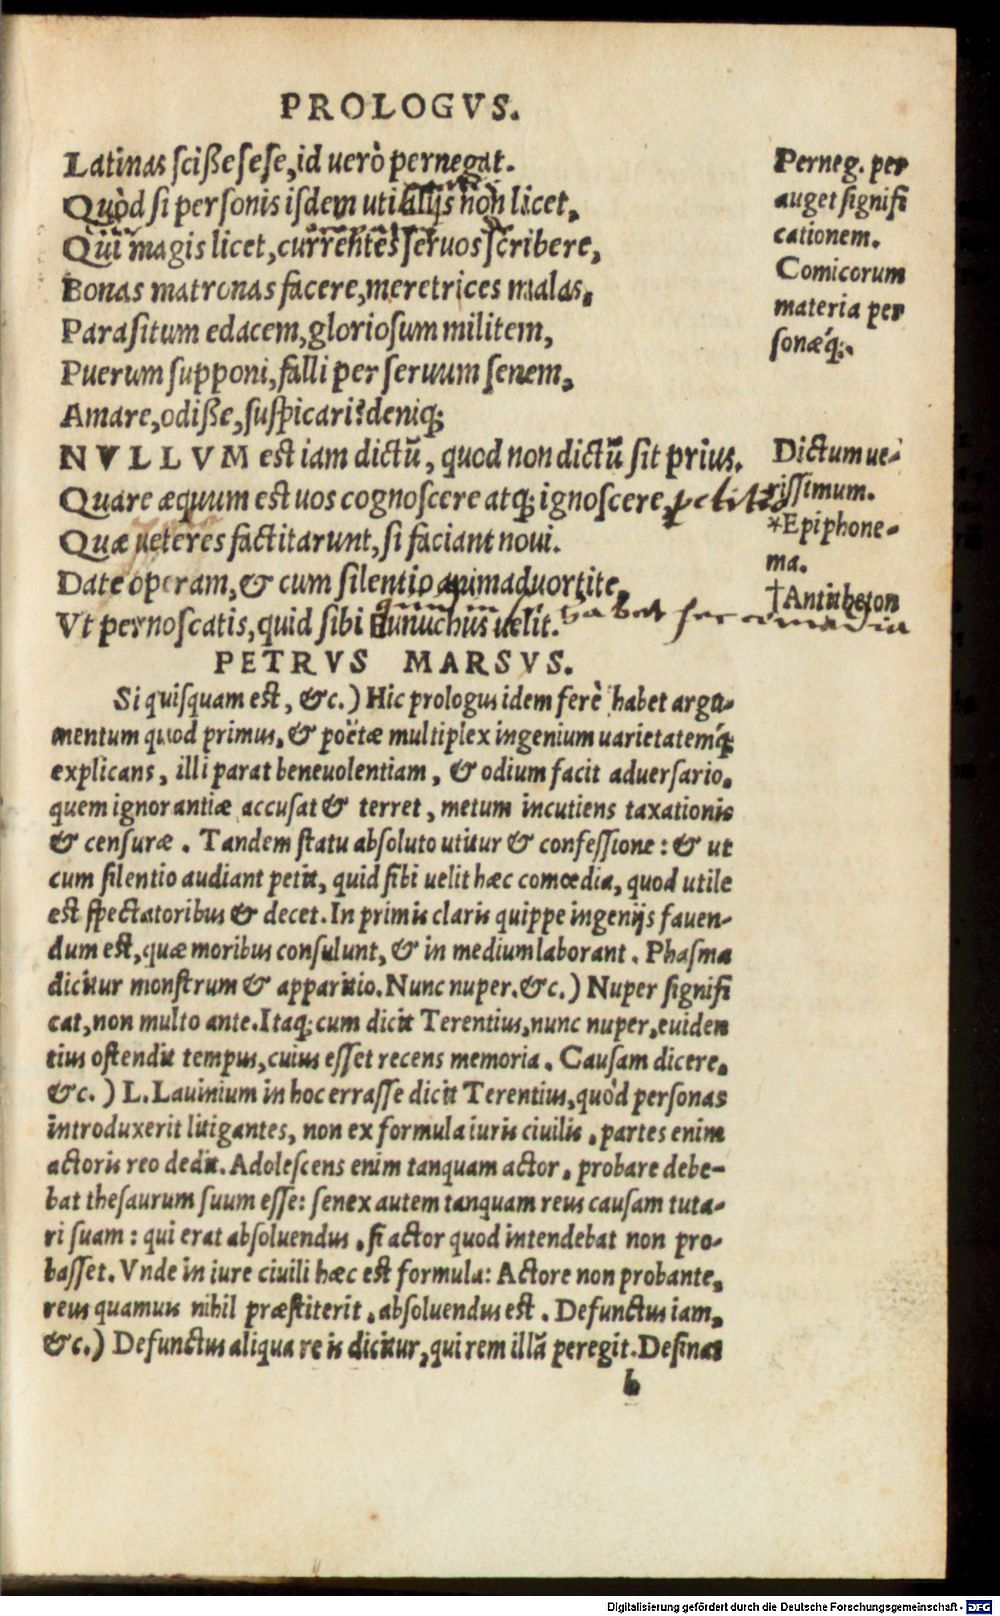 PROLOGVS.
Latinas scisse sese, id uerò pernegat.
Quòd si personis isdem uti alijs non licet,
Qui magis licet, currentes seruos scribere,
Bonas matronas facere, meretrices malas,
Parasitum edacem, gloriosum militem,
Puerum supponi, falli per seruum senem,
Amare, odisse, suspicari? deniq;
NVLLVM est iam dictū, quod non dictū sit prius.
Quare æquum est uos cognoscere atq; ignoscere,
Quæ ueteres factitarunt, si faciant noui.
Date operam, & cum silentio animaduortite,
Vt pernoscatis, quid sibi Eunuchus uelit.
habet hec comedia
Perneg. per
auget signifi
cationem.
Comicorum
materia per
sonæq́;.
Dictum ue-
rissimum.
*Epiphone-
ma.
†Antitheton
PETRVS MARSVS.
Si quisquam est, &c.) Hic prologus idem ferè habet argu-
mentum quod primus, & poëtæ multiplex ingenium uarietatemq́;
explicans, illi parat beneuolentiam, & odium facit aduersario,
quem ignorantiæ accusat & terret, metum incutiens taxationis
& censuræ. Tandem statu absoluto utitur & confessione: & ut
cum silentio audiant petit, quid sibi uelit hæc comœdia, quod utile
est spectatoribus & decet. In primis claris quippe ingenijs fauen-
dum est, quæ moribus consulunt, & in medium laborant. Phasma
dicitur monstrum & apparitio. Nunc nuper. &c.) Nuper signifi
cat, non multo ante. Itaq; cum dicit Terentius, nunc nuper, euiden
tius ostendit tempus, cuius esset recens memoria. Causam dicere,
&c.) L. Lauinium in hoc errasse dicit Terentius, quòd personas
introduxerit litigantes, non ex formula iuris ciuilis, partes enim
actoris reo dedit. Adolescens enim tanquam actor, probare debe-
bat thesaurum suum esse: senex autem tanquam reus causam tuta-
ri suam: qui erat absoluendus, si actor quod intendebat non pro-
basset. Vnde in iure ciuili hæc est formula: Actore non probante,
reus quamuis nihil præstiterit, absoluendus est. Defunctus iam,
&c.) Defunctus aliqua re is dicitur, qui rem illā peregit. Desinat
b
Digitalisierung gefördert durch die Deutsche Forschungsgemeinschaft - DFG